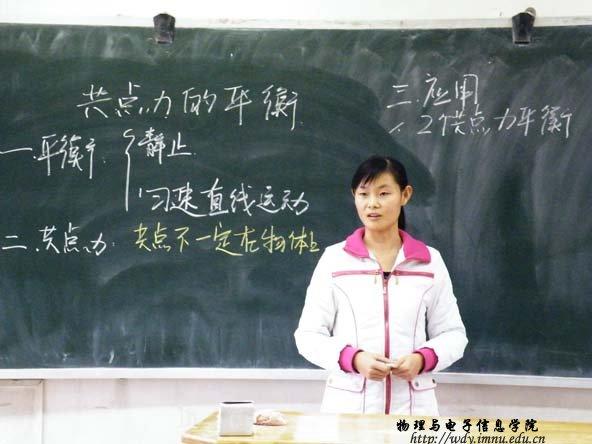 共点力的平衡
一.平衡:
静止
匀速直线运动
二.共点力:共点不一定在物体上
三.应用
1.2个共点力平衡
物理与电子信息学院
http://wdy.imnu.edu.cn